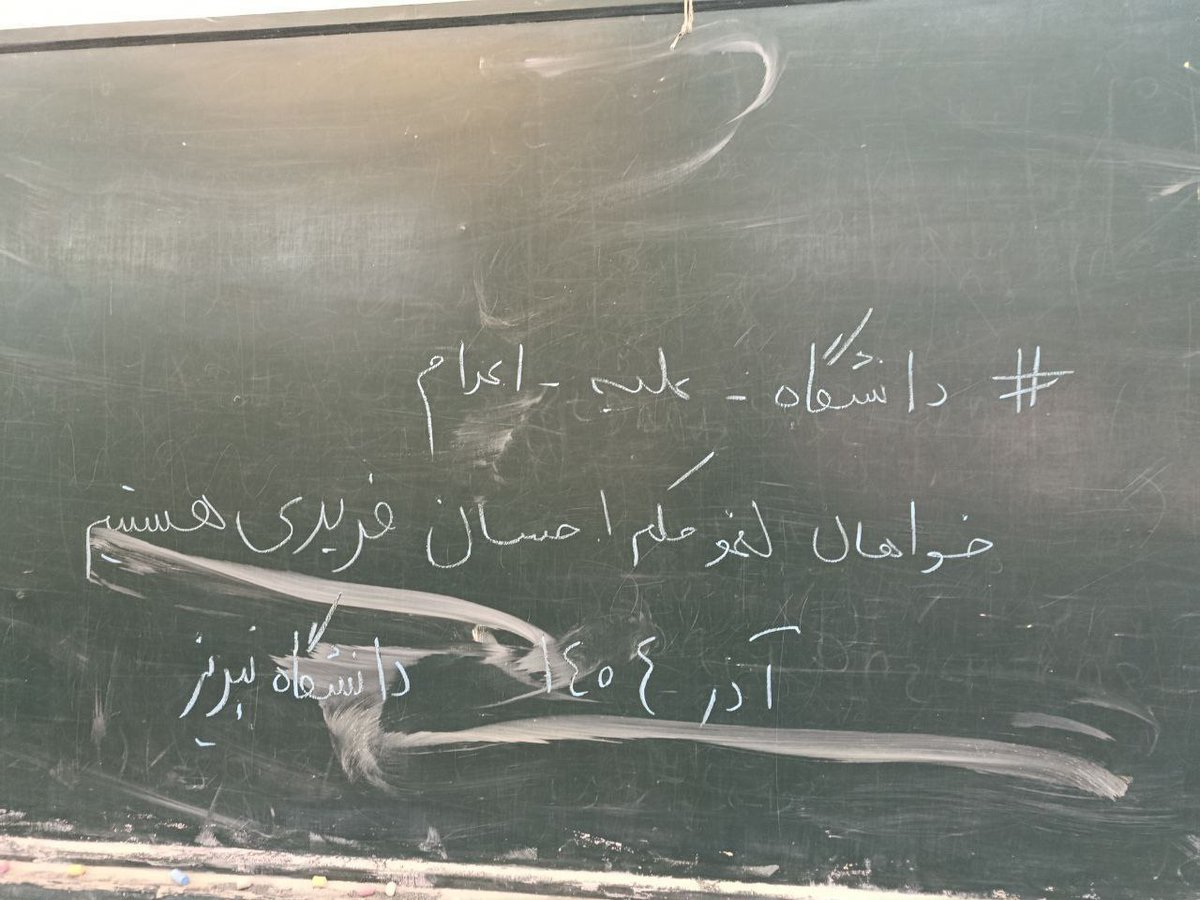 # دانشگاه - علیه - اعدام
خواهان لغو حکم احسان فریدی هستیم
آذر ١٤٠٤ دانشگاه تبریز